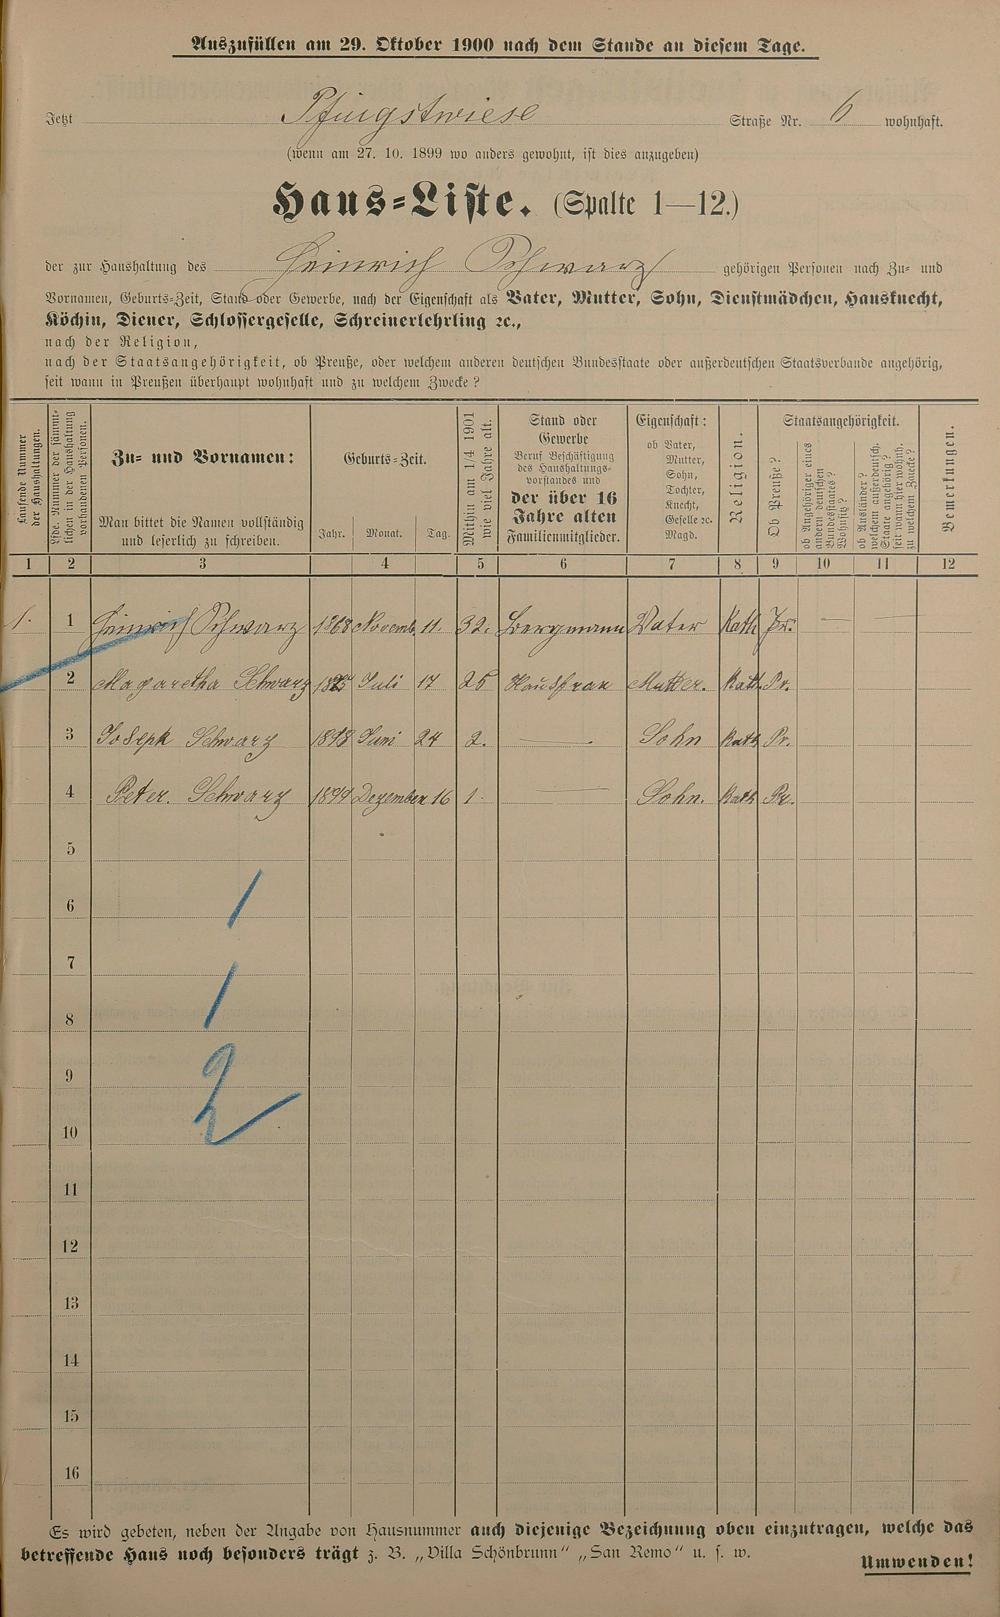 Auszufüllen am 29. Oktober 1900 nach dem Stande an diesem Tage.
Jetzt Pfingstwiese Straße Nr. 6 wohnhaft.
(wenn am 27. 10. 1899 wo anders gewohnt, ist dies anzugeben)
Haus-Liste. (Spalte 1—12.)
der zur Haushaltung des Heinrich Schwarz gehörigen Personen nach Zu- und
Vornamen, Geburts-Zeit, Stand oder Gewerbe, nach der Eigenschaft als Vater, Mutter, Sohn, Dienstmädchen, Hausknecht,
Köchin, Diener, Schlossergeselle, Schreinerlehrling ꝛc.,
nach der Religion,
nach der Staatsangehörigkeit, ob Preuße, oder welchem anderen deutschen Bundesstaate oder außerdeutschen Staatsverbande angehörig,
seit wann in Preußen überhaupt wohnhaft und zu welchem Zwecke?
Laufende Nummer
der Haushaltungen.
Lfde. Nummer der sämmt-
lichen in der Haushaltung
vorhandenen Personen.
Zu- und Vornamen:
Man bittet die Namen vollständig
und leserlich zu schreiben.
Geburts-Zeit.
Jahr. Monat. Tag.
Mithin am 1/4 1901
wie viel Jahre alt.
Stand oder
Gewerbe
Beruf Beschäftigung
des Haushaltungs-
vorstandes und
der über 16
Jahre alten
Familienmitglieder.
Eigenschaft:
ob Vater,
Mutter,
Sohn,
Tochter,
Knecht,
Geselle ꝛc.
Magd.
Religion.
Staatsangehörigkeit.
Ob Preuße?
ob Angehöriger eines
andern deutschen
Bundesstaates?
Wohnsitz?
ob Ausländer?
welchem außerdeutsch.
Staate angehörig?
seit wann hier wohnh.
zu welchem Zwecke?
Bemerkungen.
1 2 3 4 5 6 7 8 9 10 11 12
1. 1 Heinrich Schwarz 1868 Novemb. 11. 32. Bergmann Vater Kath Pr. — —
2 Magaretha Schwarz 1875 Juli 17 25 Hausfrau Mutter. Kath. Pr.
3 Joseph Schwarz 1898 Juni 24 2. — Sohn Kath Pr.
4 Peter. Schwarz 1899 Dezember 16 1. — Sohn. Kath Pr.
5
6 1
7
8 1
9
10 2
11
12
13
14
15
16
Es wird gebeten, neben der Angabe von Hausnummer auch diejenige Bezeichnung oben einzutragen, welche das
betreffende Haus noch besonders trägt z. B. „Villa Schönbrunn“ „San Remo“ u. s. w.
Umwenden!